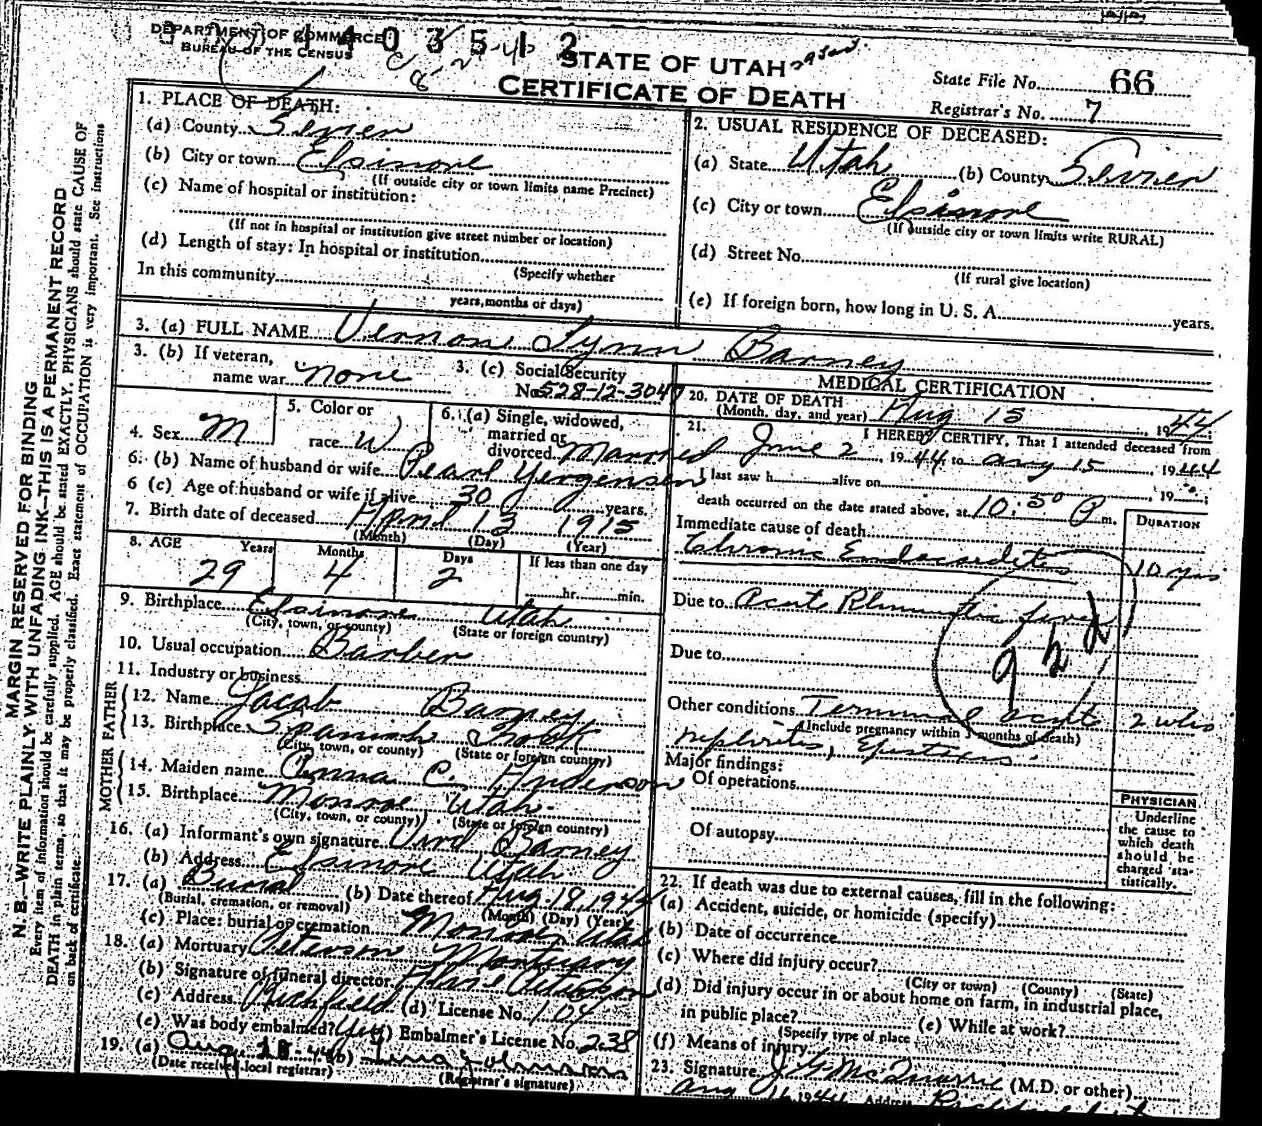 DEPARTMENT OF COMMERCE
BUREAU OF THE CENSUS
STATE OF UTAH
CERTIFICATE OF DEATH
State File No. 66
Registrar's No. 7
1. PLACE OF DEATH:
(a) County Sevier
(b) City or town Elsinore
(If outside city or town limits name Precinct)
(c) Name of hospital or institution:
(If not in hospital or institution give street number or location)
(d) Length of stay: In hospital or institution
(Specify whether
In this community
years, months or days)
2. USUAL RESIDENCE OF DECEASED:
(a) State Utah (b) County Sevier
(c) City or town Elsinore
(If outside city or town limits write RURAL)
(d) Street No.
(If rural give location)
(e) If foreign born, how long in U. S. A. years.
3. (a) FULL NAME Vernon Lynn Barney
3. (b) If veteran,
name war none
3. (c) Social Security
No. 528-12-3047
4. Sex M
5. Color or
race W
6. (a) Single, widowed,
married or
divorced Married
6. (b) Name of husband or wife Pearl Yergensen
6 (c) Age of husband or wife if alive 30 years.
7. Birth date of deceased April 13 1915
(Month) (Day) (Year)
8. AGE Years Months Days If less than one day
29 4 2 hr. min.
9. Birthplace Elsinore Utah
(City, town, or county) (State or foreign country)
10. Usual occupation Barber
11. Industry or business
FATHER
12. Name Jacob Barney
13. Birthplace Spanish Fork
(City, town, or county) (State or foreign country)
MOTHER
14. Maiden name Anna C. Anderson
15. Birthplace Monroe Utah
(City, town, or county) (State or foreign country)
16. (a) Informant's own signature Barney
(b) Address Elsinore Utah
17. (a) Burial (b) Date thereof Aug. 18, 1944
(Burial, cremation, or removal) (Month) (Day) (Year)
(c) Place: burial or cremation Monroe, Utah
18. (a) Mortuary Peterson Mortuary
(b) Signature of funeral director
(c) Address Richfield (d) License No. 104
(e) Was body embalmed? Yes (f) Embalmer's License No. 238
19. (a) Aug. 18-44 (b)
(Date received local registrar) (Registrar's signature)
MEDICAL CERTIFICATION
20. DATE OF DEATH
(Month, day, and year) Aug 15, 1944
21. I HEREBY CERTIFY, That I attended deceased from
June 2, 1944, to Aug 15 1944
I last saw h alive on , 19 ;
death occurred on the date stated above, at 10:50 P m.
DURATION
Immediate cause of death
Chronic Endocarditis 10 yrs
Due to Acute Rheumatic fever
Due to
Other conditions Terminal acute 2 wks
(Include pregnancy within 3 months of death)
nephritis, Epistaxis
Major findings:
Of operations
Of autopsy
PHYSICIAN
Underline
the cause to
which death
should be
charged sta-
tistically.
22. If death was due to external causes, fill in the following:
(a) Accident, suicide, or homicide (specify)
(b) Date of occurrence
(c) Where did injury occur?
(City or town) (County) (State)
(d) Did injury occur in or about home on farm, in industrial place,
in public place? (e) While at work?
(Specify type of place
(f) Means of injury
23. Signature J G McQuarrie (M.D. or other)
MARGIN RESERVED FOR BINDING
N. B.—WRITE PLAINLY WITH UNFADING INK—THIS IS A PERMANENT RECORD
Every item of information should be carefully supplied. AGE should be stated EXACTLY. PHYSICIANS should state CAUSE OF
DEATH in plain terms, so that it may be properly classified. Exact statement of OCCUPATION is very important. See instructions
on back of certificate.